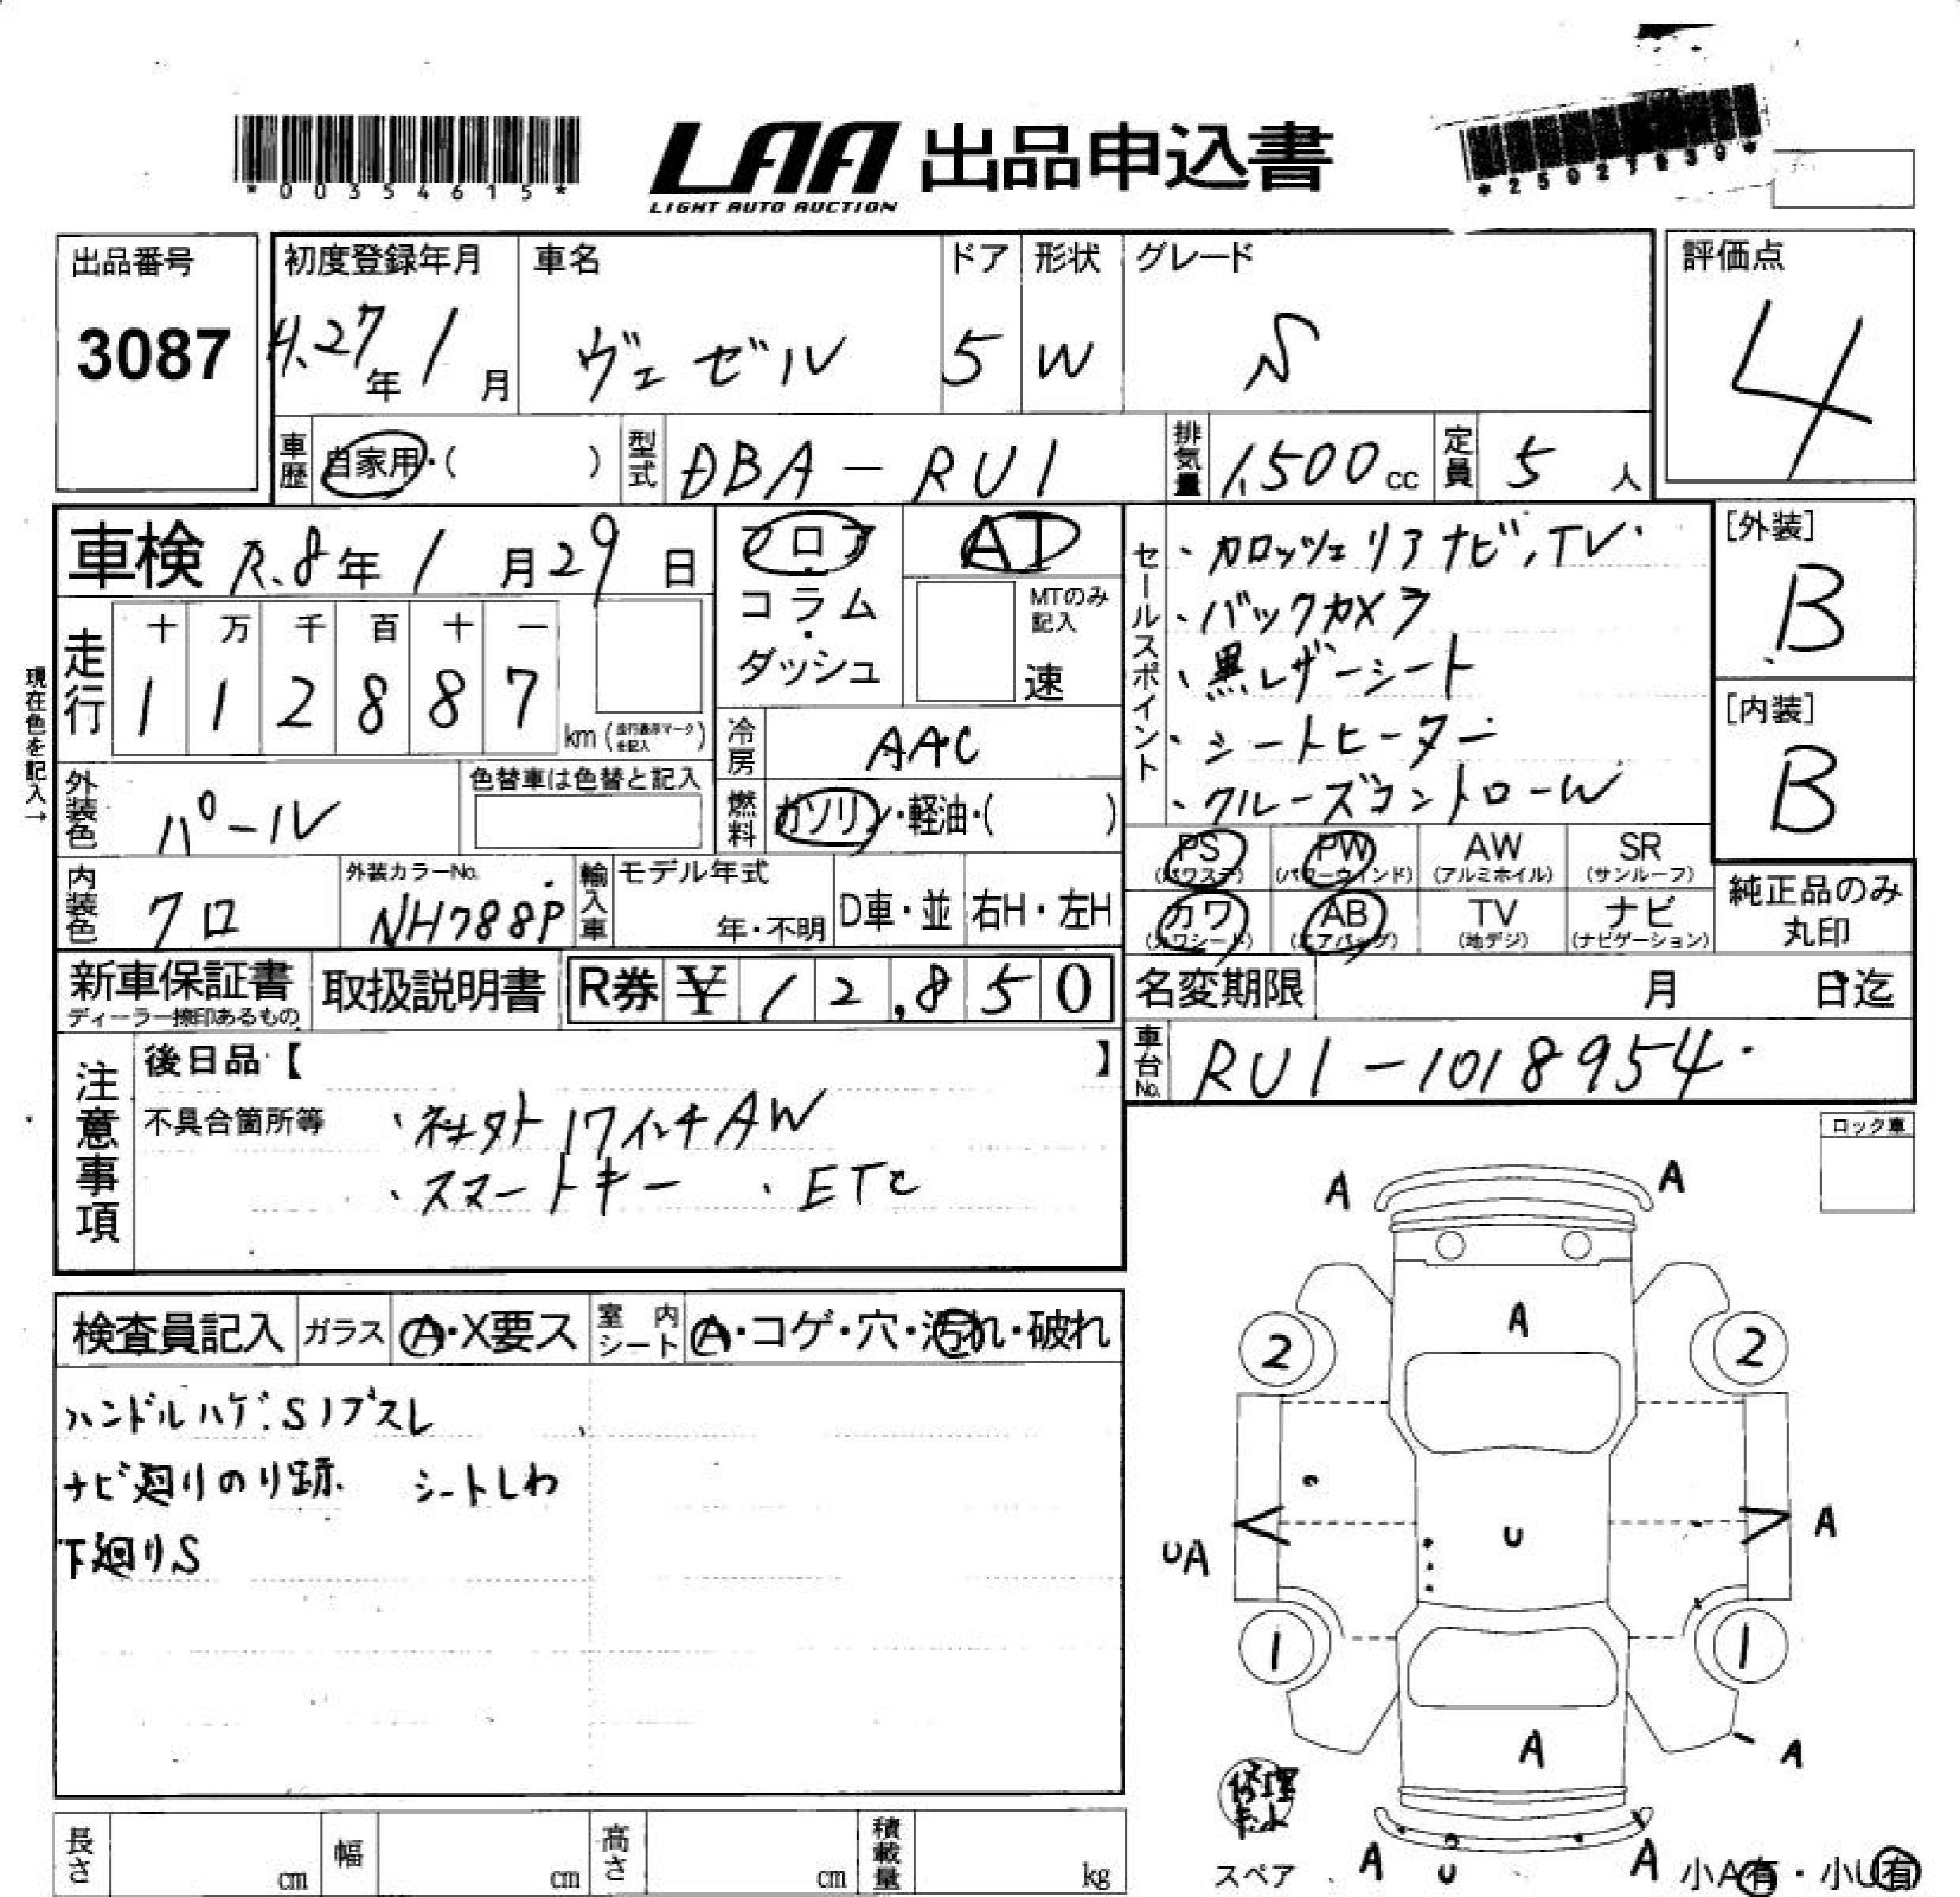 *00354615*
LAA 出品申込書
LIGHT AUTO AUCTION
*25027839*
出品番号
3087
初度登録年月
H.27年1月
車名
ヴェゼル
ドア
5
形状
W
グレード
S
評価点
4
車歴
自家用・( )
型式
DBA-RU1
排気量
1,500cc
定員
5人
車検 R.8年1月29日
走行
十 万 千 百 十 一
1 1 2 8 8 7
km(走行表示マークを記入)
現在色を記入→
フロア
・
コラム
・
ダッシュ
AT
MTのみ記入
速
冷房
AAC
燃料
ガソリン・軽油・( )
セールスポイント
・カロッツェリアナビ,TV・
・バックカメラ
・黒レザーシート
・シートヒーター
・クルーズコントロール
[外装]
B
[内装]
B
外装色
パール
色替車は色替と記入
内装色
クロ
外装カラーNo.
NH788P
輸入車
モデル年式
年・不明
D車・並
右H・左H
PS (パワステ)
PW (パワーウインド)
AW (アルミホイル)
SR (サンルーフ)
カワ (カワシート)
AB (エアバッグ)
TV (地デジ)
ナビ (ナビゲーション)
純正品のみ
丸印
新車保証書
ディーラー捺印あるもの
取扱説明書
R券 ¥12,850
名変期限 月 日迄
車台No.
RU1-1018954・
注意事項
後日品【 】
不具合箇所等
・社外17インチAW
・スマートキー ・ETC
ロック車
検査員記入
ガラス
A・X要ス
室内シート
A・コゲ・穴・汚れ・破れ
ハンドルハゲ・S1ブスレ
ナビ廻りのり跡. シートしわ
下廻りS
A A
A
2 2
U
UA
A
1 1
A
A
修理キット
スペア
A U A
小A有・小U有
長さ cm
幅 cm
高さ cm
積載量 kg